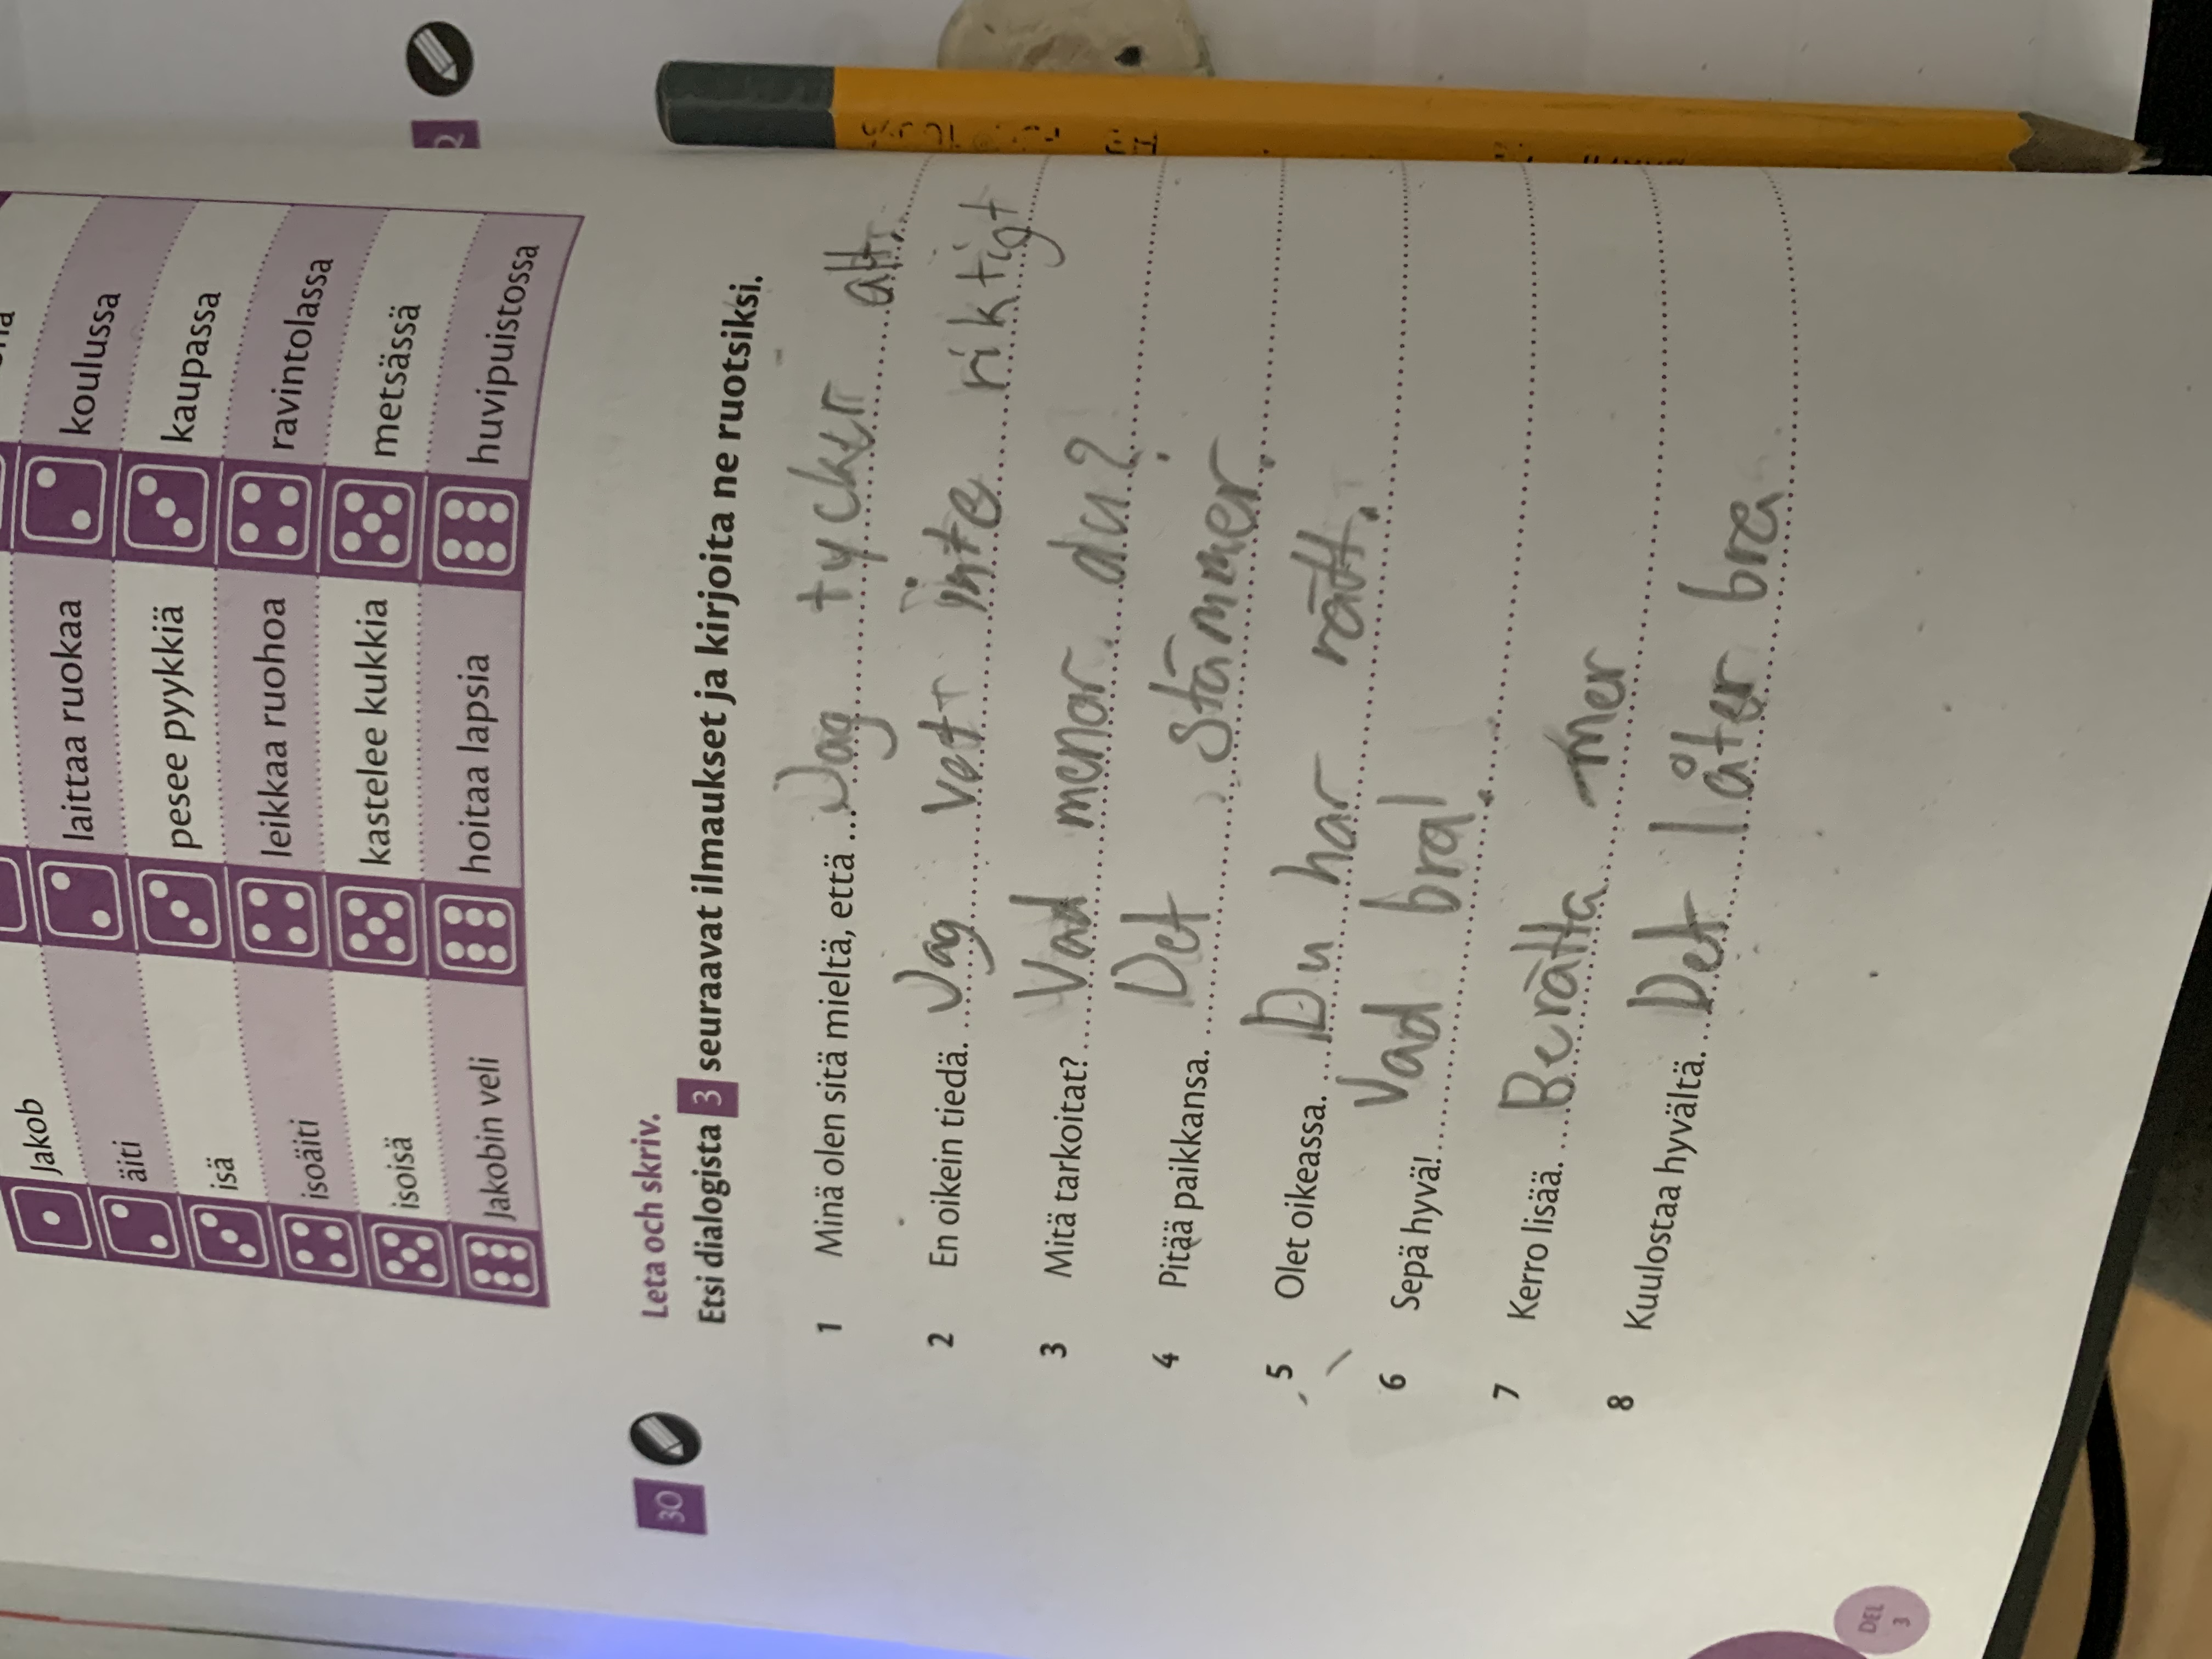 Jakob
koulussa
äiti laittaa ruokaa kaupassa
isä pesee pyykkiä ravintolassa
isoäiti leikkaa ruohoa metsässä
isoisä kastelee kukkia huvipuistossa
Jakobin veli hoitaa lapsia
30 Leta och skriv.
Etsi dialogista 3 seuraavat ilmaukset ja kirjoita ne ruotsiksi.
1 Minä olen sitä mieltä, että ... Jag tycker att.
2 En oikein tiedä. Jag vet inte riktigt
3 Mitä tarkoitat? Vad menar du?
4 Pitää paikkansa. Det stämmer.
5 Olet oikeassa. Du har rätt.
6 Sepä hyvä! Vad bra!
7 Kerro lisää. Berätta mer
8 Kuulostaa hyvältä. Det låter bra
DEL
3